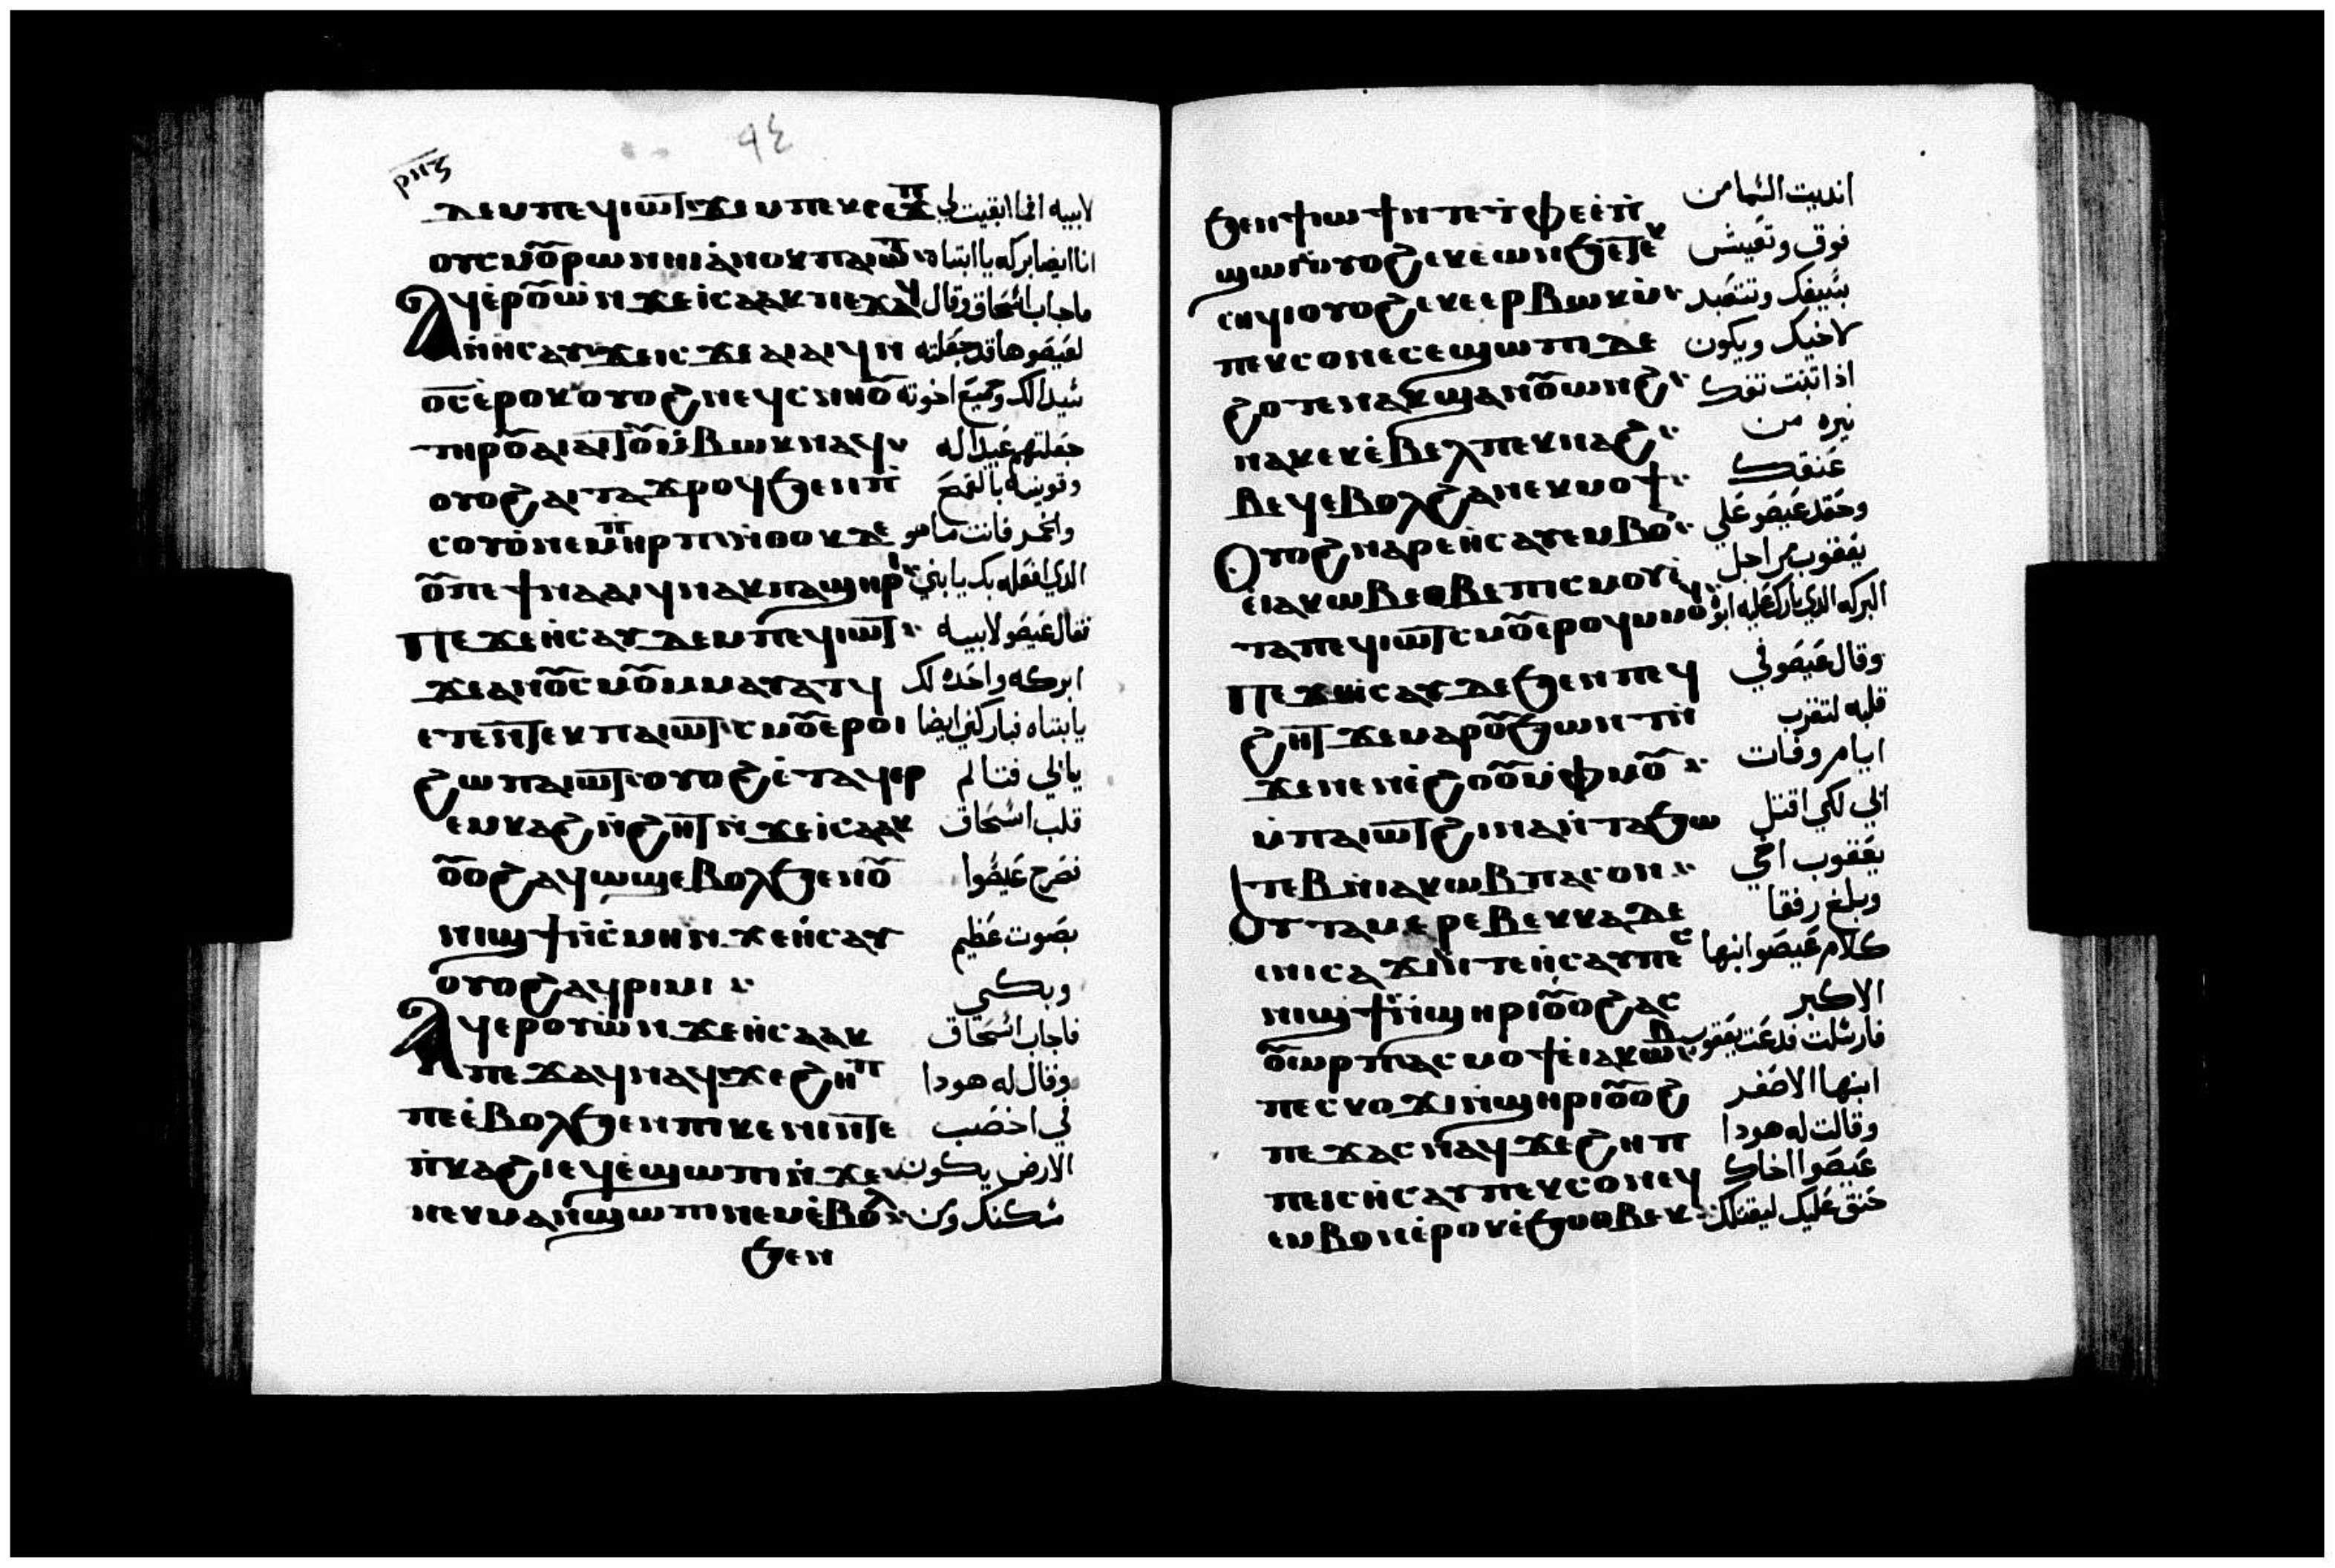 ⲣⲛⲍ
٩٤
ⲇⲉ ⲙⲡⲉϥⲓⲱⲧ ϫⲉ ⲙⲡⲉⲕⲥⲉϫⲡ لابيه انما ابقيت لي
ⲟⲩⲥⲙⲟⲩ ⲣⲱ ⲛⲏⲓ ⲁⲛⲟⲕ ⲡⲁⲓⲱⲧ انا ايضا بركه يا ابتاه
ⲁϥⲉⲣⲟⲩⲱ̀ ⲛϫⲉ ⲓⲥⲁⲁⲕ ⲡⲉϫⲁϥ فاجاب اسحاق وقال
ⲛⲏⲥⲁⲩ ϫⲉ ⲓⲥϫⲉ ⲁⲓⲁⲓϥ ⲛ لعيصو ها قد جعلته
ⲟ̅ⲥ̅ ⲉⲣⲟⲕ ⲟⲩⲟϩ ⲛⲉϥⲥⲛⲏⲟⲩ سيدا لك وجميع اخوته
ⲧⲏⲣⲟⲩ ⲁⲓⲁⲓⲧⲟⲩ ⲙⲃⲱⲕ ⲛⲁϥ جعلتهم عبيدا له
ⲟⲩⲟϩ ⲁⲓⲧⲁϫⲣⲟϥ ϧⲉⲛ ⲡⲓ وقويته بالقمح
ⲥⲟⲩⲟ ⲛⲉⲙ ⲡⲏⲣⲡ ⲛⲑⲟⲕ ⲇⲉ والخمر فانت ما هو
ⲟⲩ ⲡⲉϯⲛⲁⲁⲓϥ ⲛⲁⲕ ⲡⲁϣⲏⲣⲓ الذي افعله بك يا بني
ⲡⲉϫⲉ ⲏⲥⲁⲩ ⲇⲉ ⲙⲡⲉϥⲓⲱⲧ فقال عيصو لابيه
ϫⲉ ⲁⲛ ⲟⲩⲥⲙⲟⲩ ⲙⲙⲁⲩⲁⲧϥ ابركه واحده لك
ⲉⲧⲉⲛⲧⲉⲕ ⲡⲁⲓⲱⲧ ⲥⲙⲟⲩ ⲉⲣⲟⲓ يا ابتاه فباركني ايضا
ϩⲱ ⲡⲁⲓⲱⲧ ⲟⲩⲟϩ ⲉⲧⲁϥⲉⲣ يا ابي فتالم
ⲉⲙⲕⲁϩ ⲛϩⲏⲧ ⲛϫⲉ ⲓⲥⲁⲁⲕ قلب اسحاق
ⲟⲩⲟϩ ⲁϥⲱϣ ⲉⲃⲟⲗ ϧⲉⲛ ⲟⲩ فصرخ عيصوا
ⲛⲓϣϯ ⲛⲥⲙⲏ ⲛϫⲉ ⲏⲥⲁⲩ بصوت عظيم
ⲟⲩⲟϩ ⲁϥⲣⲓⲙⲓ وبكي
ⲁϥⲉⲣⲟⲩⲱ ⲛϫⲉ ⲏⲥⲁⲁⲕ فاجاب اسحاق
ⲡⲉϫⲁϥ ⲛⲁϥ ϫⲉ ϩⲏⲡ وقال له هودا
ⲡⲉ ⲉⲃⲟⲗ ϧⲉⲛ ⲡⲓⲕⲉⲛⲓ ⲛⲧⲉ في اخصب
ⲡⲕⲁϩⲓ ⲉϥⲉϣⲱⲡⲓ ⲛϫⲉ الارض يكون
ⲡⲉⲕⲙⲁⲛϣⲱⲡⲓ ⲛⲉⲙ ⲉⲃⲟⲗ مسكنك ومن
ϧⲉⲛ
ϧⲉⲛ ϯⲓⲱϯ ⲛⲧⲉ ⲧⲫⲉ ⲙⲡ انديت السما من
ϣⲱⲓ ⲟⲩⲟϩ ⲉⲕⲉⲱⲛϧ ⲉⲧⲉⲕ فوق وتعيش
ⲥⲏϥⲓ ⲟⲩⲟϩ ⲉⲕⲉⲉⲣⲃⲱⲕ ⲙ بسيفك وتتعبد
ⲡⲉⲕⲥⲟⲛ ⲉⲥⲉϣⲱⲡⲓ ⲇⲉ لاخيك ويكون
ϩⲟⲧⲉ ⲛⲁⲕϣⲁⲛⲟⲩⲱⲛϩ اذا اتيت تفك
ⲛⲁⲕ ⲉⲕⲉⲃⲉⲗ ⲡⲉⲕⲛⲁϩ نيره من
ⲃⲉϥ ⲉⲃⲟⲗ ϩⲁ ⲡⲉⲕⲙⲟϯ عنقك
ⲟⲩⲟϩ ⲛⲁⲣⲉ ⲏⲥⲁⲩ ⲉⲙⲃⲟⲛ وحقد عيصو علي
ⲉⲓⲁⲕⲱⲃ ⲉⲑⲃⲉ ⲡⲓⲥⲙⲟⲩ يعقوب من اجل
ⲧⲁ ⲡⲉϥⲓⲱⲧ ⲥⲙⲟⲩ ⲉⲣⲟϥ ⲙⲙⲟϥ البركه الذي بارك عليه ابوه
ⲡⲉϫⲉ ⲏⲥⲁⲩ ⲇⲉ ϧⲉⲛ ⲡⲉϥ وقال عيصو في
ϩⲏⲧ ϫⲉ ⲙⲁⲣⲟⲩϧⲱⲛⲧ ⲛ قلبه لتقرب
ϫⲉ ⲛⲉⲛⲉϩⲟⲟⲩ ⲙⲫⲙⲟⲩ ايام وفات
ⲙⲡⲁⲓⲱⲧ ϩⲓⲛⲁ ⲛⲧⲁϧⲱ ابي لكي اقتل
ⲧⲉⲃ ⲛⲓⲁⲕⲱⲃ ⲡⲁⲥⲟⲛ يعقوب اخي
ⲟⲩⲧⲁⲙⲉ ⲣⲉⲃⲉⲕⲕⲁ ⲇⲉ وبلغ رفقا
ⲉⲛⲓⲥⲁϫⲓ ⲛⲧⲉ ⲏⲥⲁⲩ ⲡⲉⲥ كلام عيصو ابنها
ⲛⲓϣϯ ⲛϣⲏⲣⲓ ⲟⲩⲟϩ ⲁⲥ الاكبر
ⲟⲩⲱⲣⲡ ⲁⲥⲙⲟϯ ⲉⲓⲁⲕⲱⲃ فارسلت فدعت يعقوب
ⲡⲉⲥⲕⲟⲩϫⲓ ⲛϣⲏⲣⲓ ⲟⲩⲟϩ ابنها الاصغر
ⲡⲉϫⲁⲥ ⲛⲁϥ ϫⲉ ϩⲏⲡ وقالت له هودا
ⲡⲉ ⲓⲥ ⲏⲥⲁⲩ ⲡⲉⲕⲥⲟⲛ ⲉϥ عيصوا اخاك
ⲉⲙⲃⲟⲛ ⲉⲣⲟⲕ ⲉϧⲟⲑⲃⲉⲕ حنق عليك ليقتلك